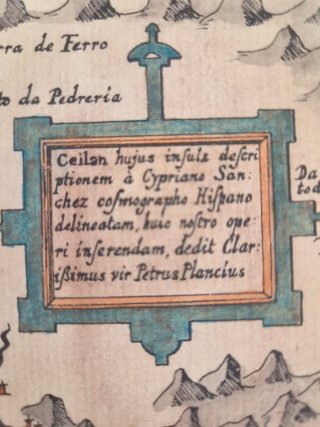 rra de Ferro
to da Pedreria
Ceilan hujus insulæ descri
ptionem à Cypriano San:
chez cosmographo Hispano
delineatam, huic nostro ope:
ri inserendam, dedit Clar:
ißimus vir Petrus Plancius
Da
tod